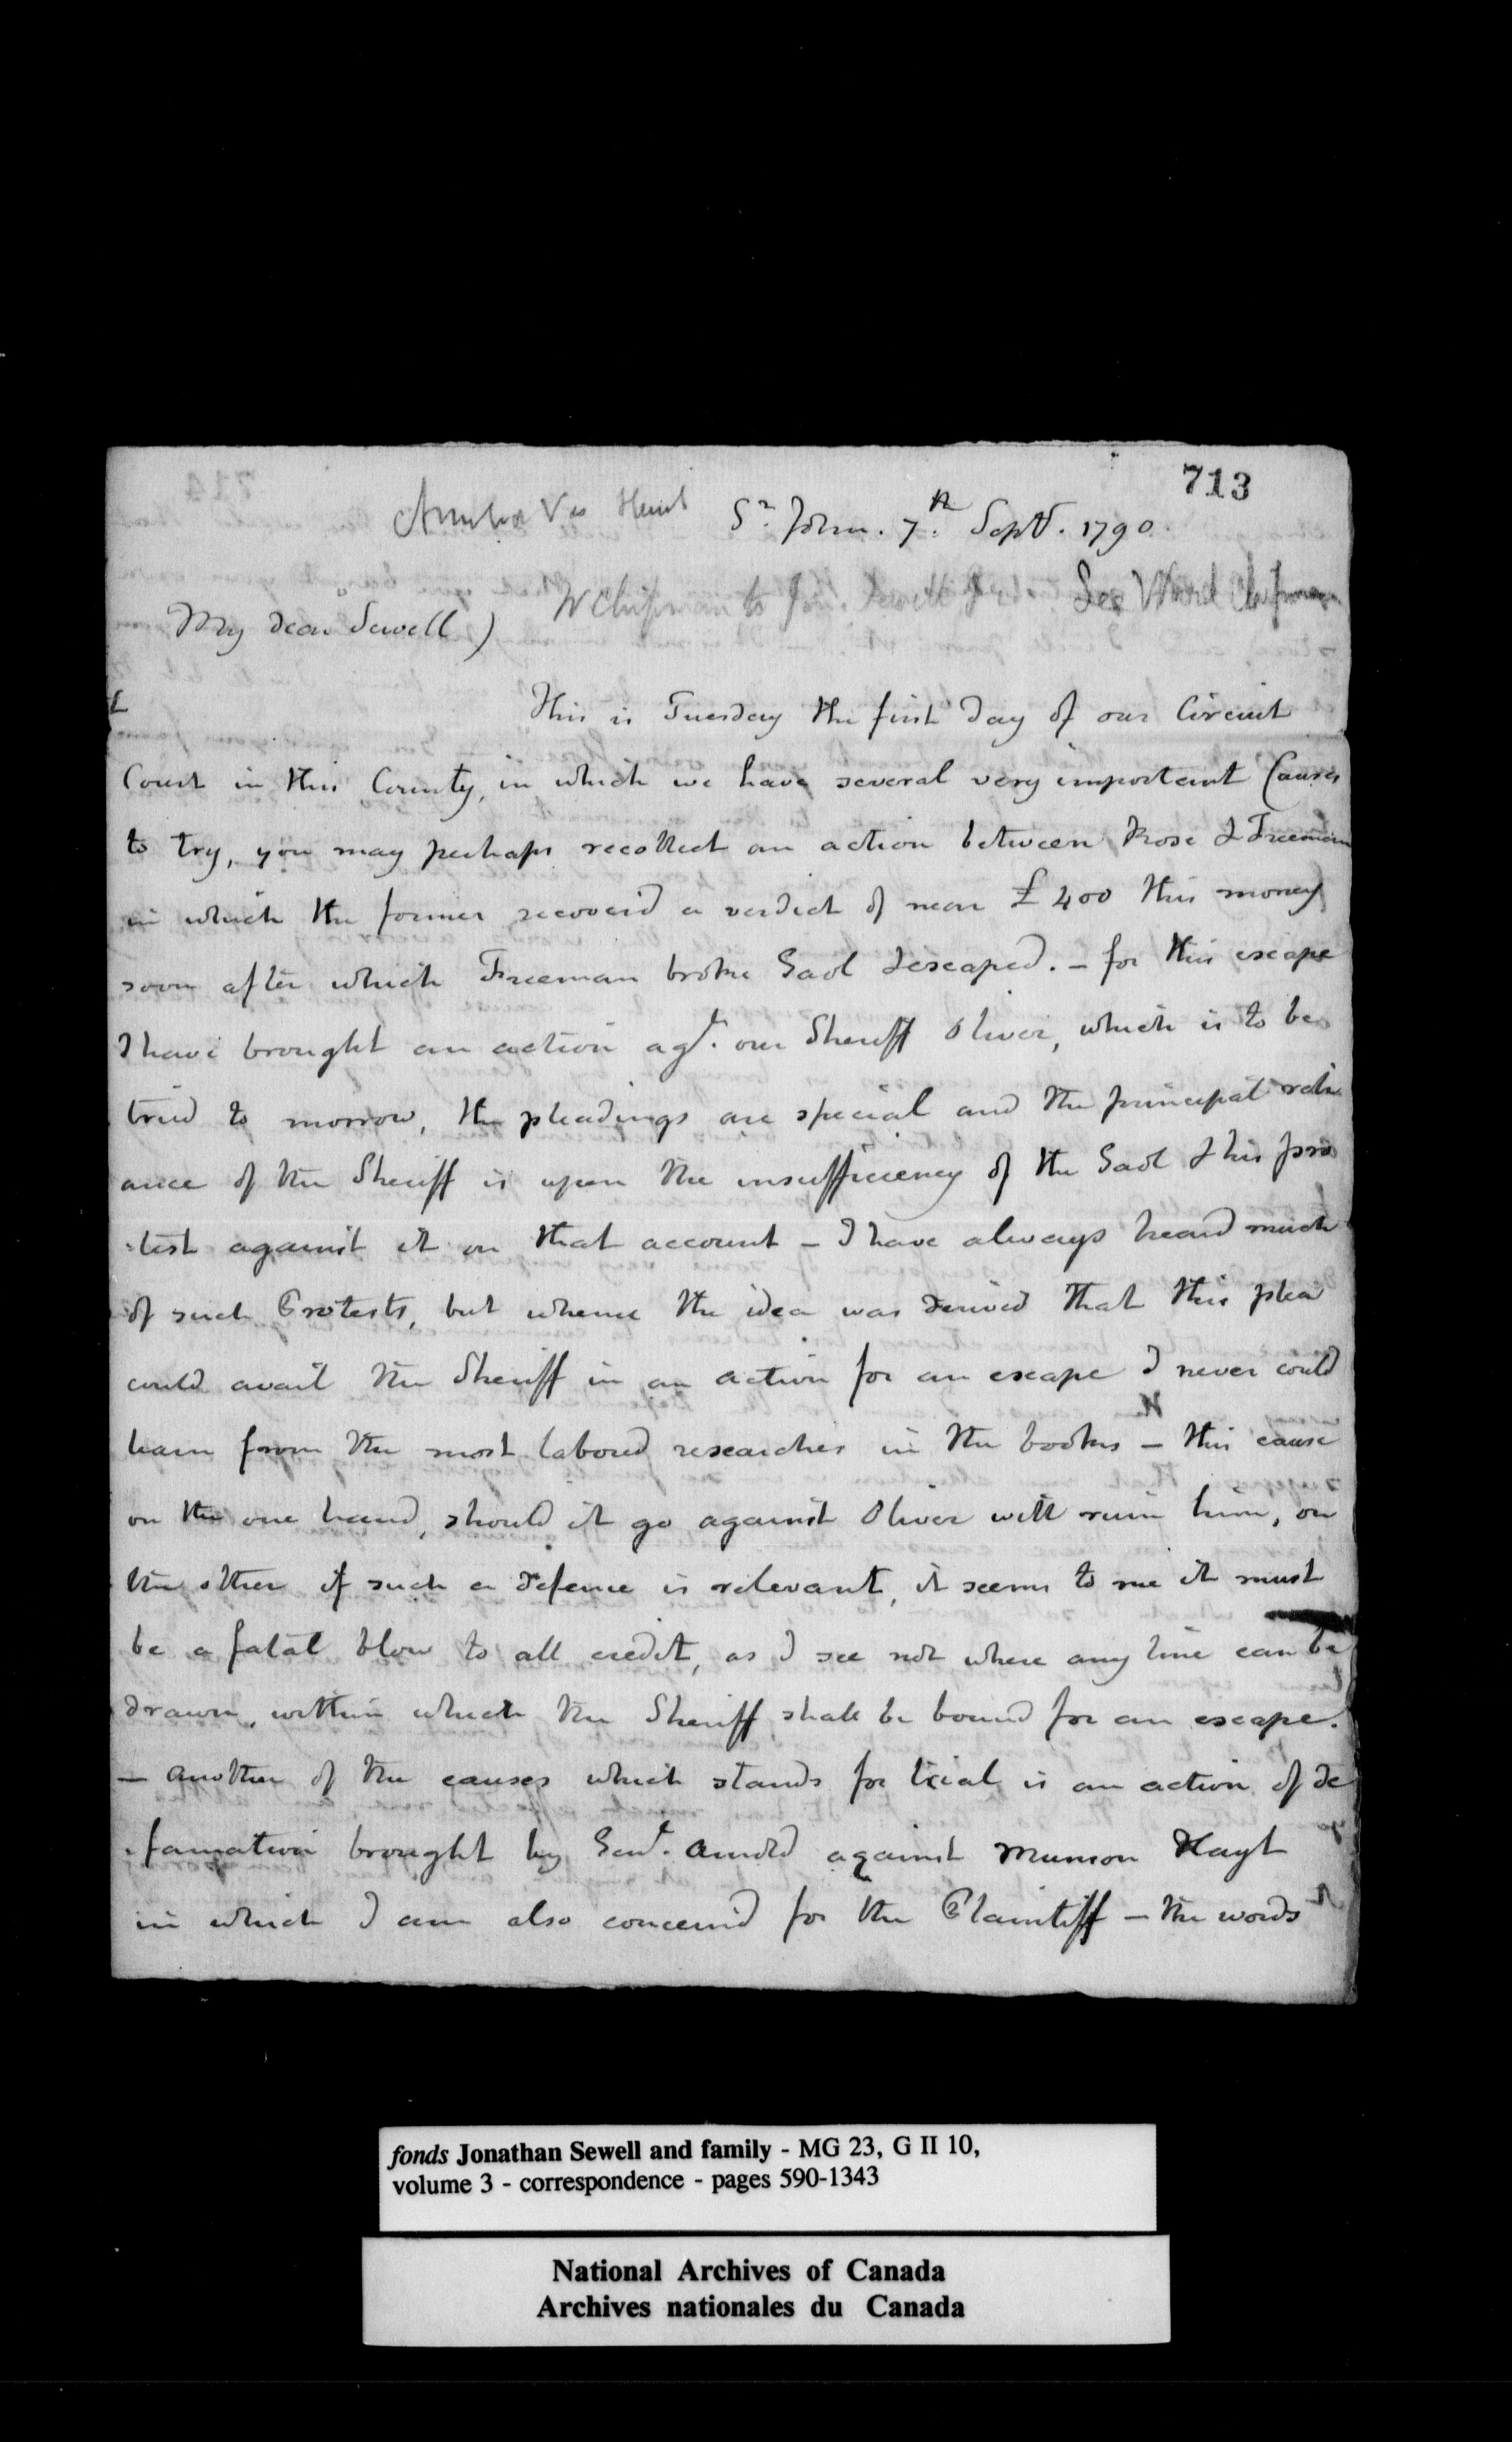 713
Arnold Vs Hait St. John. 7th Septr. 1790.
W Chipman to Jon. Sewell See Ward Chipman
My dear Sewell)
This is Tuesday the first day of our Circuit
Court in this County, in which we have several very important Causes
to try, you may perhaps recollect an action between Rose & Freeman
in which the former recover'd a verdict of near £400 this money
soon after which Freeman broke Gaol & escaped. – for this escape
I have brought an action agt. our Sheriff Oliver, which is to be
tried to morrow, the pleadings are special and the principal reli
ance of the Sheriff is upon the insufficiency of the Gaol & his pro
:test against it on that account – I have always heard much
of such Protests, but whence the idea was derived that this plea
could avail the Sheriff in an action for an escape I never could
learn from the most labored researches in the books – this cause
on the one hand, should it go against Oliver will ruin him, on
the other if such a defence is relevant, it seems to me it must
be a fatal blow to all credit, as I see not where any line can be
drawn, within which the Sheriff shall be bound for an escape.
– another of the causes which stands for trial is an action of de
:famation brought by Genl. Arnold against Munson Hayt
in which I am also concern'd for the Plaintiff – the words
fonds Jonathan Sewell and family - MG 23, G II 10,
volume 3 - correspondence - pages 590-1343
National Archives of Canada
Archives nationales du Canada